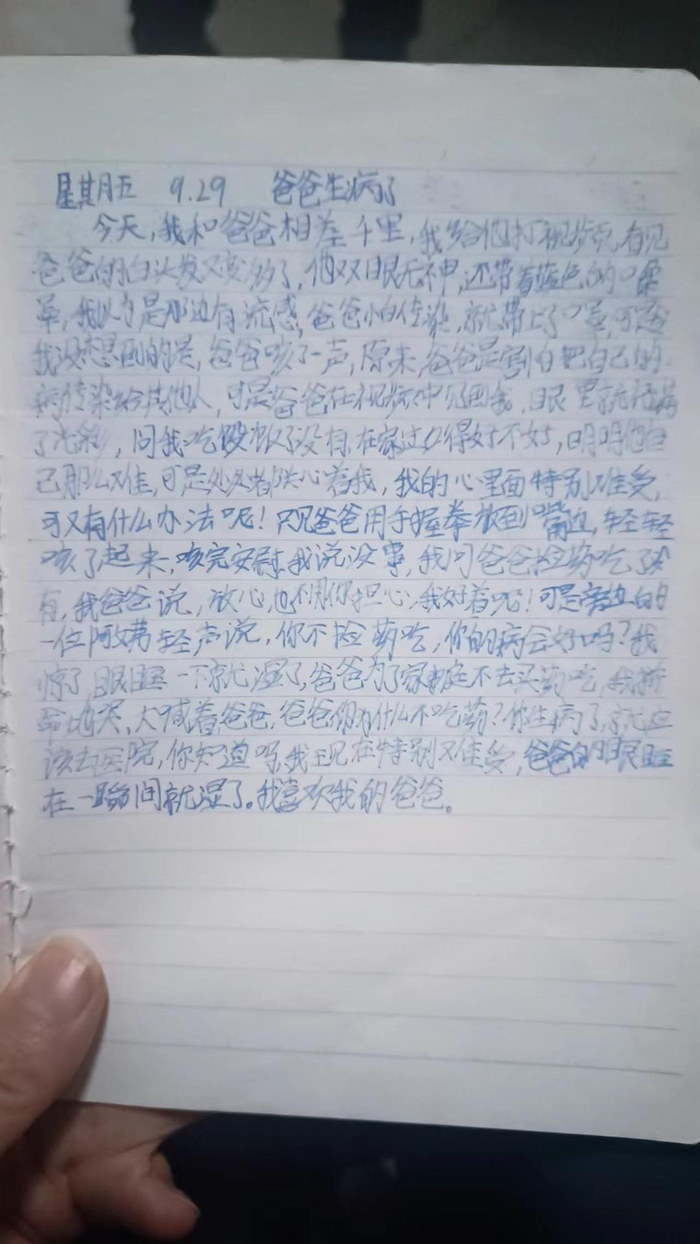 星期五 9.29 爸爸生病了
今天,我和爸爸相差千里,我给他打视频,看见
爸爸的白头发又变多了,他双眼无神,还带着蓝色的口罩
罩,我以为是那边有流感,爸爸怕传染,就带上了口罩,可是
我没想到的是,爸爸咳了一声,原来,爸爸是害怕把自己的
病传染给其他人,可是爸爸在视频中见到我,眼里就充满
了光彩,问我吃饭了没有,在家过得好不好,明明他自
己那么难,可是处处都关心着我,我的心里面特别难受,
可又有什么办法呢!只见爸爸用手握拳放到嘴边,轻轻
咳了起来,咳完安慰我说没事,我问爸爸捡药吃了没
有,我爸爸说,放心,也不用你担心,我好着呢!可是旁边的
一位阿姨轻声说,你不捡药吃,你的病会好吗?我
惊了,眼睛一下就湿了,爸爸为了家庭不去买药吃,我拼
命地哭,大喊着,爸爸,爸爸你为什么不吃药?你生病了,就应
该去医院,你知道吗,我现在特别难受,爸爸的眼睛
在一瞬间就湿了。我喜欢我的爸爸。